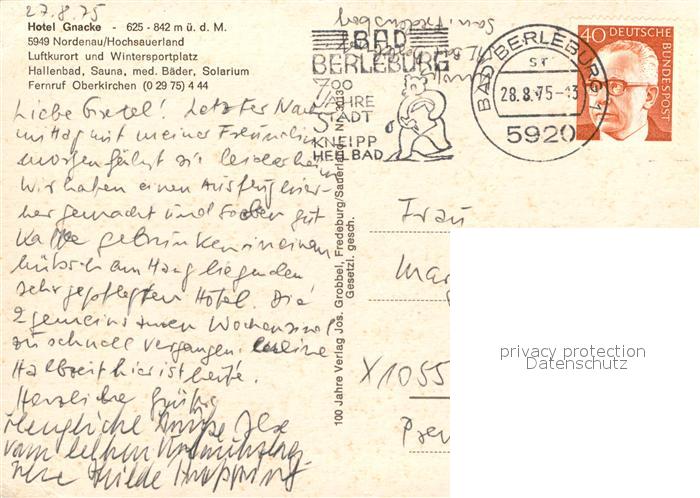 27.8.75
Hotel Gnacke - 625 - 842 m ü. d. M.
5949 Nordenau/Hochsauerland
Luftkurort und Wintersportplatz
Hallenbad, Sauna, med. Bäder, Solarium
Fernruf Oberkirchen (0 29 75) 4 44
Liebe Gretel! Letzter Nach
mittag mit meiner Freundin
morgen fährt sie leider heim
Wir haben einen Ausflug hier-
her gemacht und soeben gut
Kaffee getrunken in einem
hübsch am Hang liegenden
sehr gepflegten Hotel. Die
2 gemeinsamen Wochen sind
zu schnell vergangen. Meine
Halbzeit hier ist heute.
Herzliche Grüße
Ilse
Herzliche Grüße
vom letzten
Hilde
100 Jahre Verlag Jos. Grobbel, Fredeburg/Sauerland
Gesetzl. gesch.
BAD
BERLEBURG
700
JAHRE
STADT
KNEIPP
HEILBAD
BAD BERLEBURG 1
sr
28.8.75-13
5920
40 DEUTSCHE
BUNDESPOST
Frau
Mar
X1055
privacy protection
Datenschutz